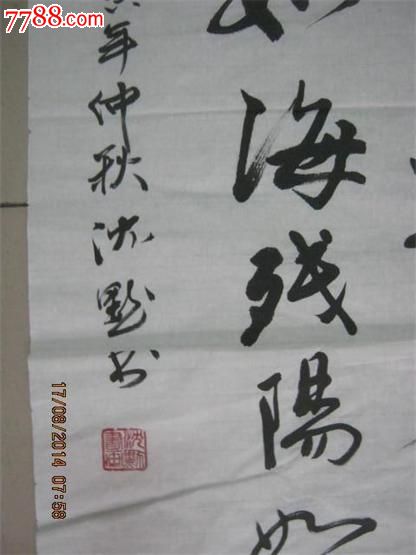 7788.com
如海残陽如
年仲秋沈默书
17/08/2014 07:58